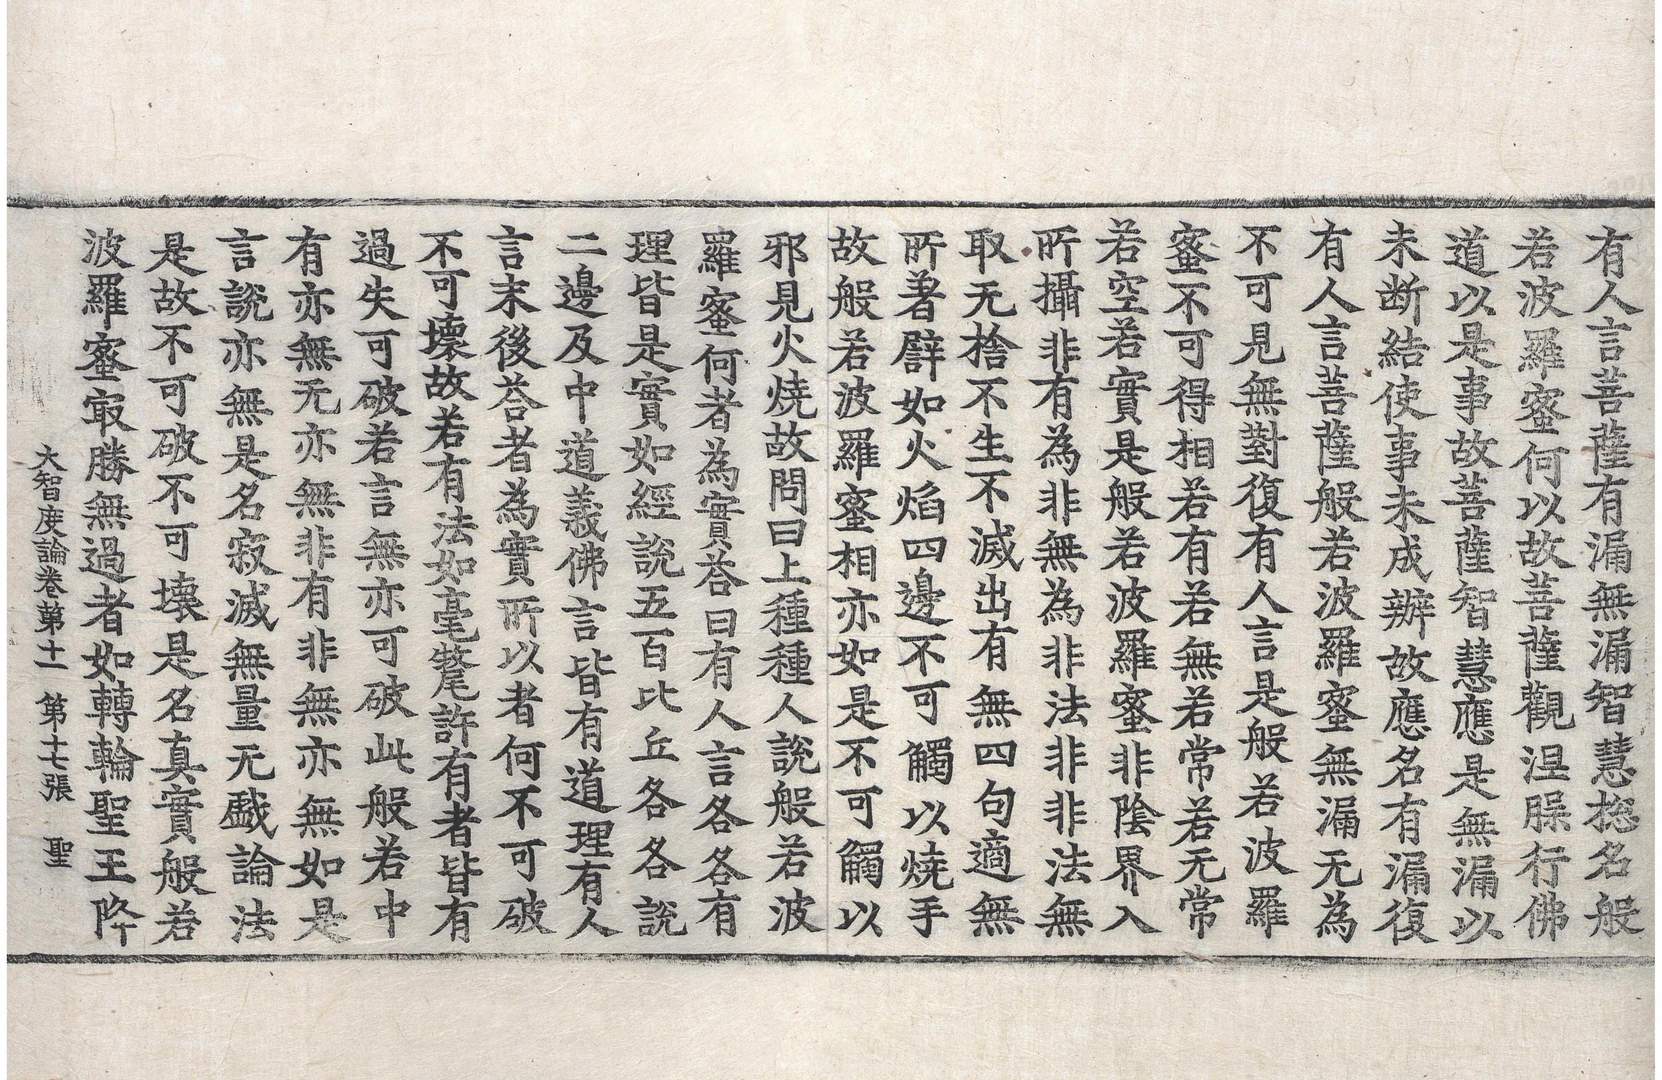 有人言菩薩有漏無漏智慧揔名般
若波羅蜜何以故菩薩觀涅槃行佛
道以是事故菩薩智慧應是無漏以
未断結使事未成辦故應名有漏復
有人言菩薩般若波羅蜜無漏无為
不可見無對復有人言是般若波羅
蜜不可得相若有若無若常若无常
若空若實是般若波羅蜜非陰界入
所攝非有為非無為非法非非法無
取无捨不生不滅出有無四句適無
所著譬如火焰四邊不可觸以燒手
故般若波羅蜜相亦如是不可觸以
邪見火燒故問曰上種種人說般若波
羅蜜何者為實荅曰有人言各各有
理皆是實如經說五百比丘各各說
二邊及中道義佛言皆有道理有人
言末後荅者為實所以者何不可破
不可壞故若有法如毫氂許有者皆有
過失可破若言無亦可破此般若中
有亦無无亦無非有非無亦無如是
言說亦無是名寂滅無量无戱論法
是故不可破不可壞是名真實般若
波羅蜜㝡勝無過者如轉輪聖王降
大智度論卷第十一 第十七張 聖